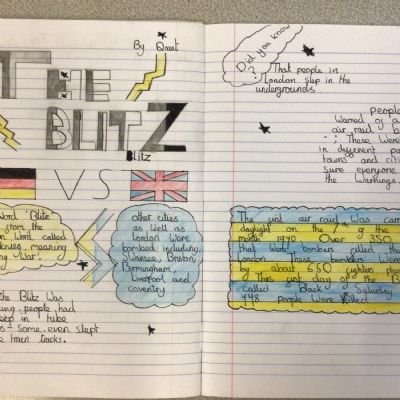 By
THE
BLITZ
Blitz
VS
Word 'Blitz
from the
word called
meaning
War'.
other cities
as well as
London were
bombed including,
Swansea, Bristol,
Birmingham,
Liverpool and
coventry
The Blitz was
people, had
in tube
Some, even slept
train tracks.
Did you know
?
That people in
London slep in the
undergrounds.
people
Warned of a
air raid b
These were
in different pa
towns and citi
sure everyone
the warnings.
The 1st air raid was carr
daylight on the 7th of the
month 1940 Over 350
that were bombers called the
London These bombers were
by about 650 fighters plan
This 1st day of the Bl
called Black Saturday
448 people were killed